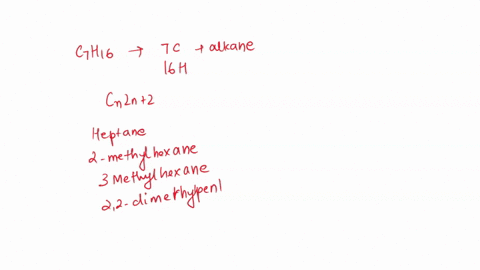 C7H16 → 7C + alkane
16H
Cn2n+2
Heptane
2-methylhexane
3 Methylhexane
2,2-dimethylpenl